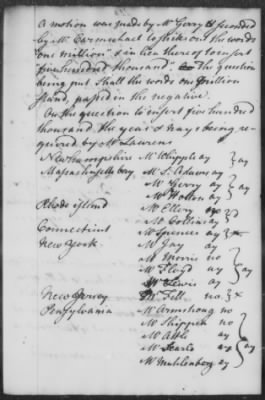 a motion was made by Mr Gerry & seconded
by Mr Carmichael to strike out the words
"one million" & in lieu thereof to insert
"five hundred thousand" The question
being put shall the words one million
stand, passed in the negative.
On the question to insert five hundred
thousand the yeas & nays being re-
quired by Mr Laurens
New hampshire Mr Whipple ay } ay
Massachusetts bay Mr S. Adams ay
Mr Gerry ay } ay
Mr Holten ay
Rhode island Mr Ellery
Mr Collins
Connecticut Mr Spencer ay } x
New York Mr Jay ay
Mr Morris no
Mr Floyd ay } ay
Mr Lewis ay
New Jersey Mr Fell no } x
Pensylvania Mr Armstrong no
Mr Shippen no
Mr Atlee ay
Mr Searle ay } ay
Mr Muhlenberg ay